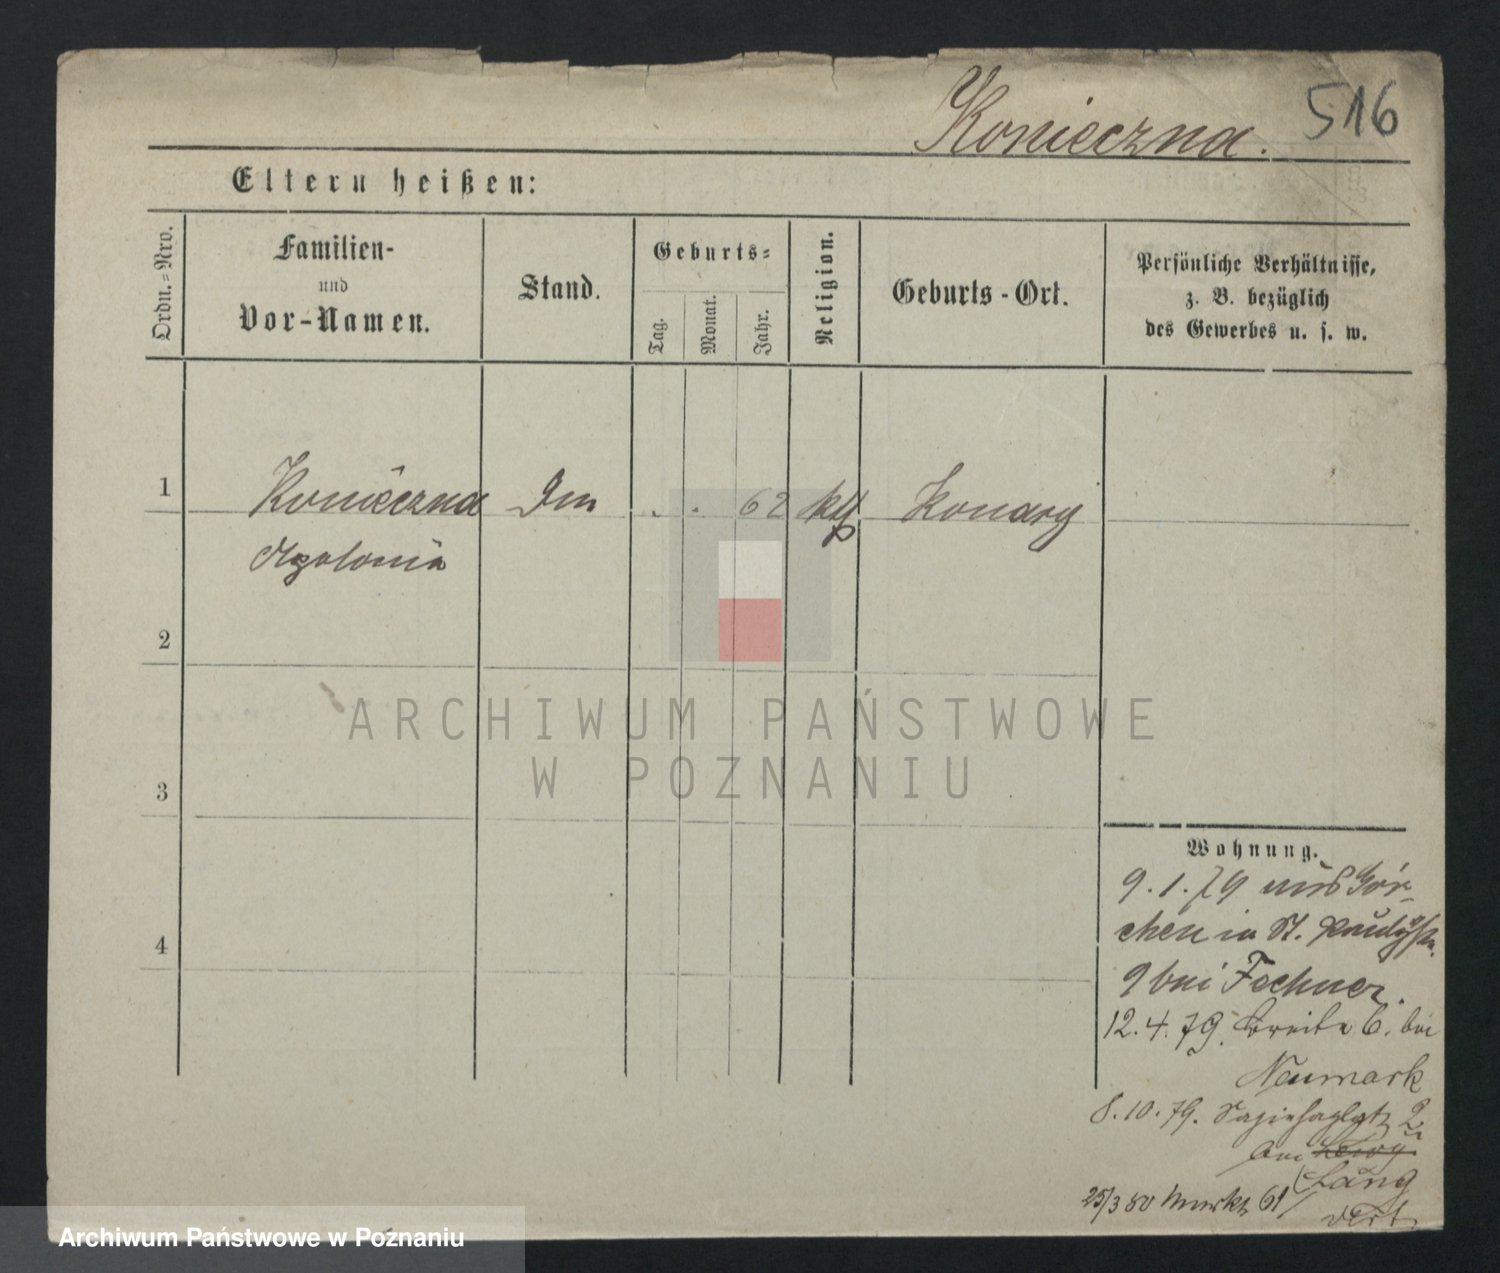 Konieczna.
516
Eltern heißen:
Ordn.-Nro.
Familien-
und
Vor-Namen.
Stand.
Geburts-
Tag.
Monat.
Jahr.
Religion.
Geburts-Ort.
Persönliche Verhältnisse,
z. B. bezüglich
des Gewerbes u. s. w.
1
Konieczna
Apolonia
62
Konary
2
3
4
Wohnung.
9.1.79 aus Gör-
chen in St.
9 bei Fechner.
12.4.79. Breite 6. bei
Neumark
8.10.79. Sapiehaplatz 2
bei
Lang
25/3 80 Markt 61/
dort
ARCHIWUM PAŃSTWOWE
W POZNANIU
Archiwum Państwowe w Poznaniu